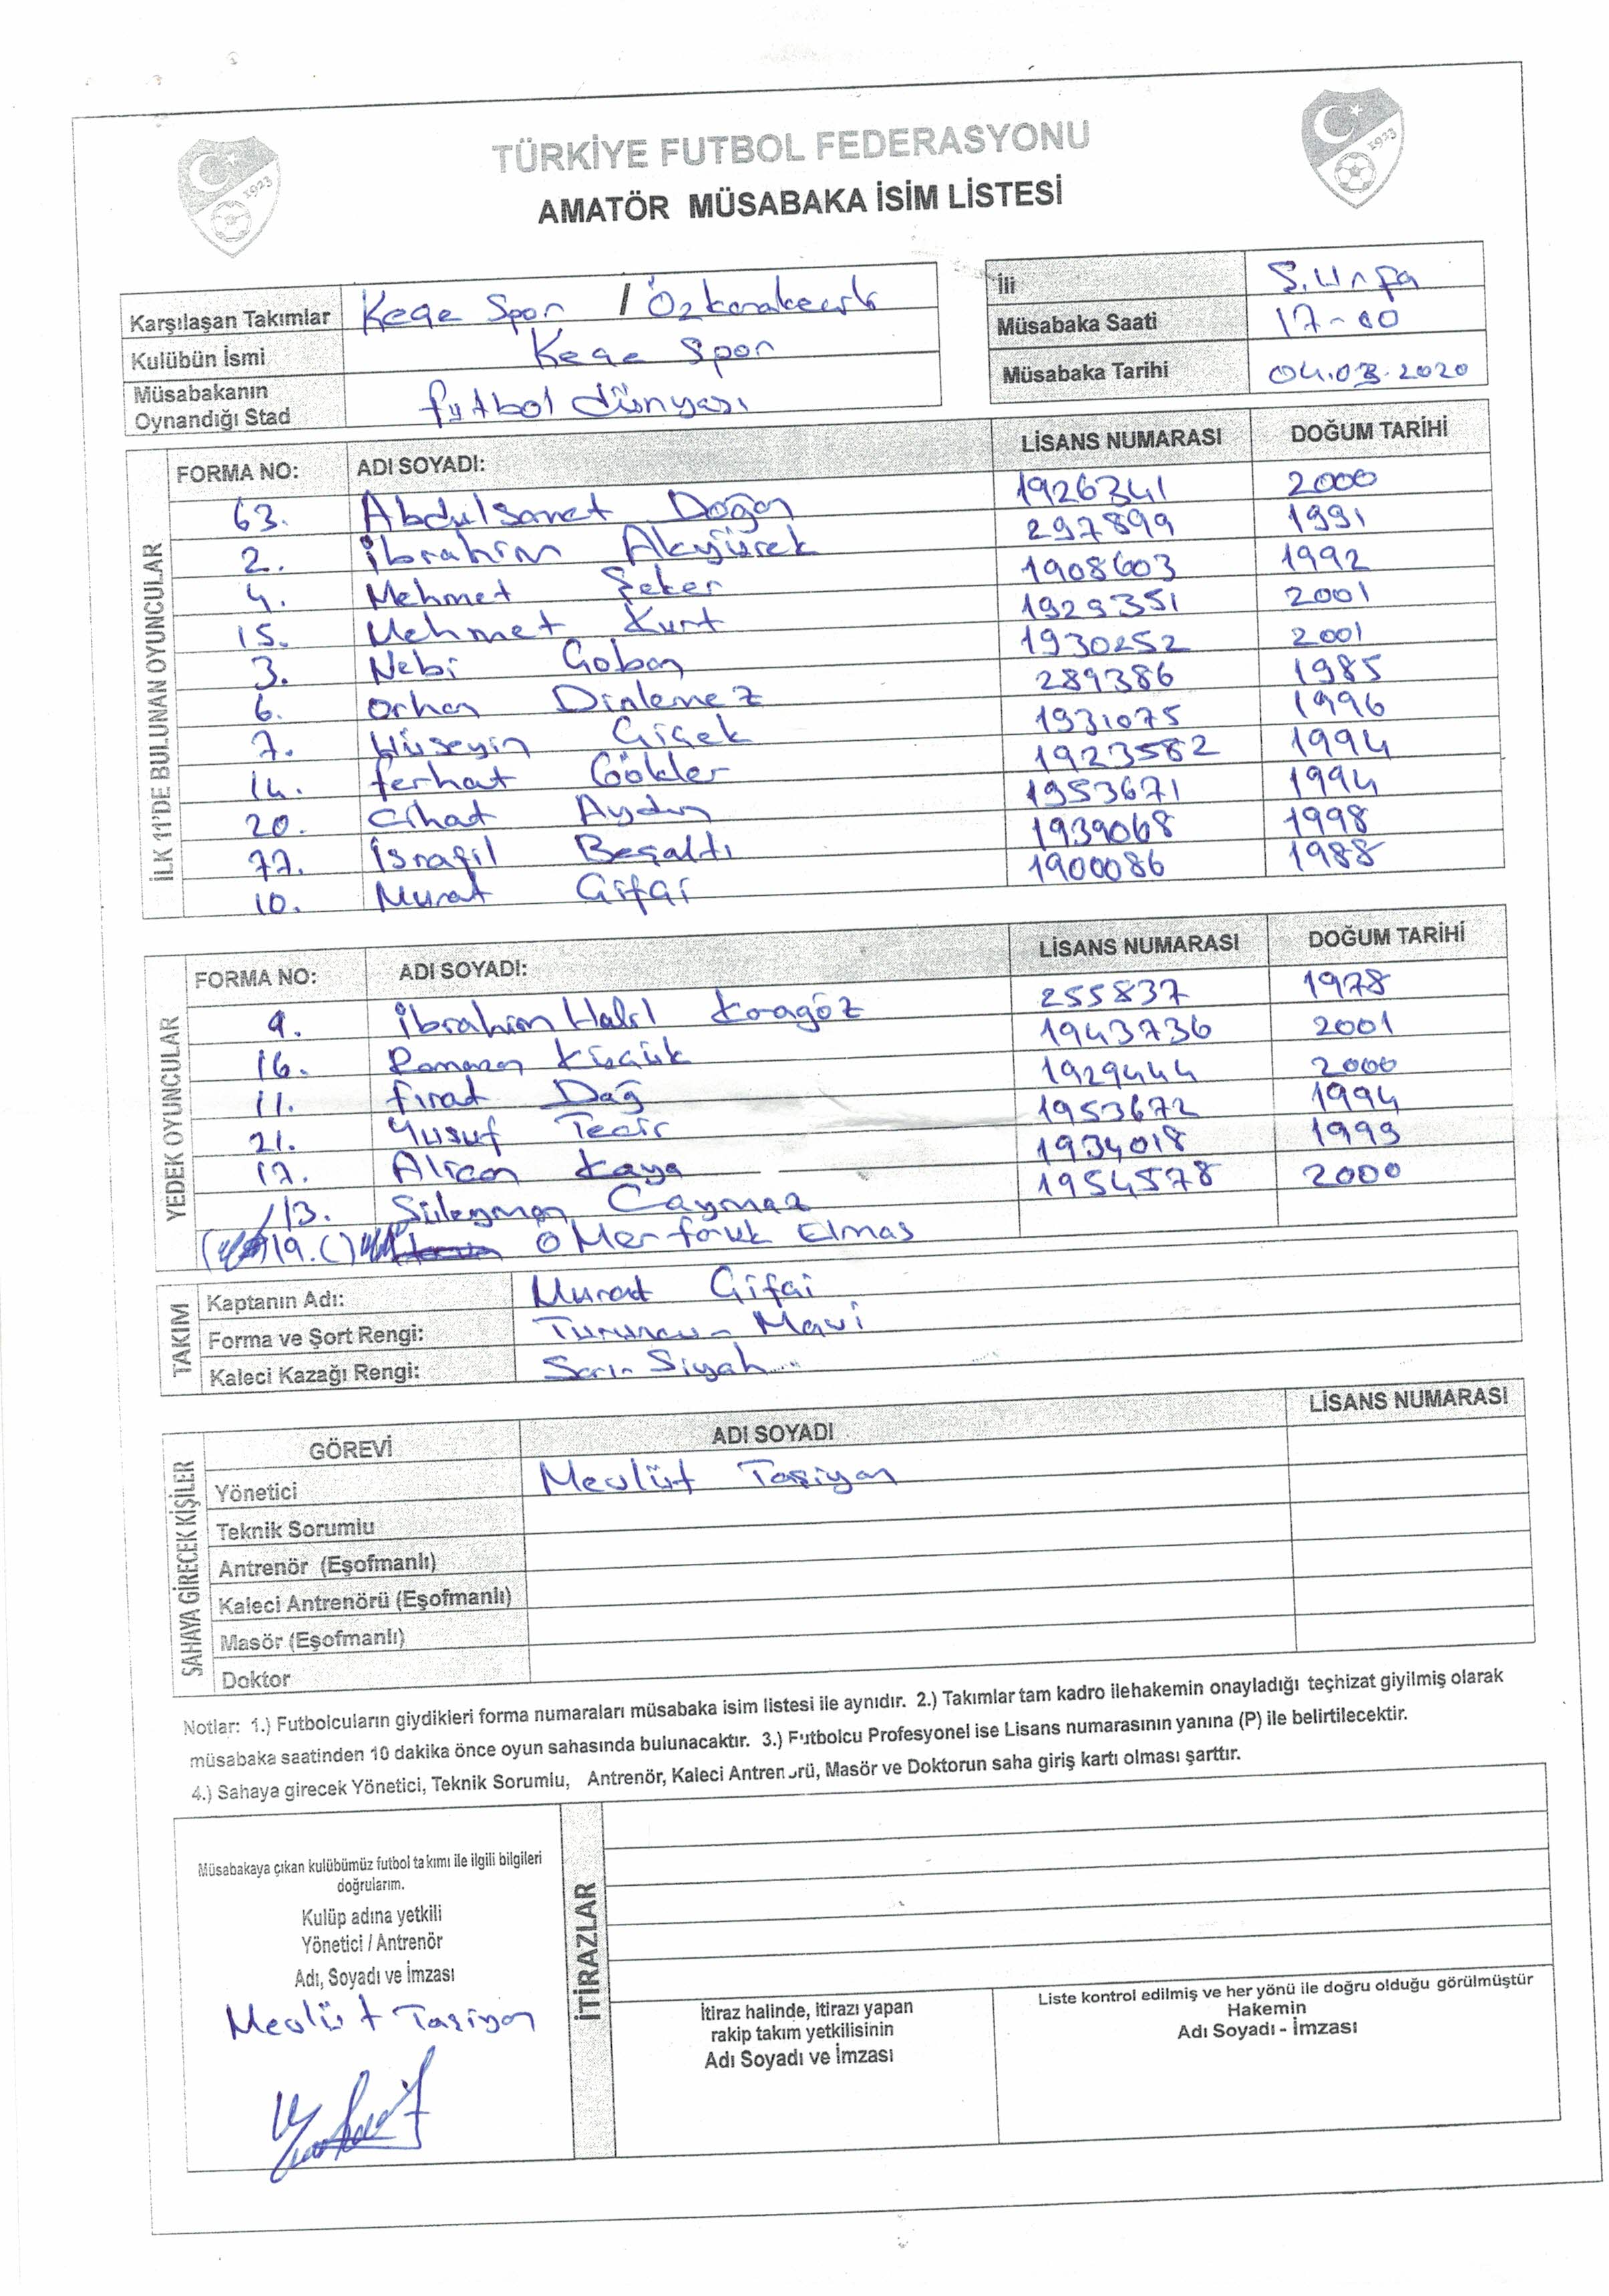 TÜRKİYE FUTBOL FEDERASYONU
AMATÖR MÜSABAKA İSİM LİSTESİ
1923
1923
Karşılaşan Takımlar Keçe Spor / Özkarakeçili
Kulübün İsmi Keçe Spor
Müsabakanın Oynandığı Stad futbol dünyası
İli Ş.Urfa
Müsabaka Saati 17-00
Müsabaka Tarihi 04.03.2020
İLK 11'DE BULUNAN OYUNCULAR
FORMA NO: ADI SOYADI: LİSANS NUMARASI DOĞUM TARİHİ
63. Abdulsamet Doğan 1926341 2000
2. İbrahim Akyürek 297899 1991
4. Mehmet Şeker 1908603 1992
15. Mehmet Kurt 1929351 2001
3. Nebi Çoban 1930252 2001
6. Orhan Dinlemez 289386 1985
7. Hüseyin Çiçek 1931075 1996
14. ferhat Gökler 1923582 1994
20. Cihat Aydın 1953671 1994
77. İsrafil Beşaltı 1939068 1998
10. Murat Çifçi 1900086 1988
YEDEK OYUNCULAR
FORMA NO: ADI SOYADI: LİSANS NUMARASI DOĞUM TARİHİ
9. İbrahim Halil Karagöz 255837 1978
16. Ramazan Küçük 1943736 2001
11. fırat Dağ 1929444 2000
21. Yusuf Tecir 1953672 1994
17. Alican Kaya 1934018 1999
13. Süleyman Caymaz 1954578 2000
19. ÖMerfaruk Elmas
TAKIM
Kaptanın Adı: Murat Çifçi
Forma ve Şort Rengi: Turuncu - Mavi
Kaleci Kazağı Rengi: Sarı - Siyah
SAHAYA GİRECEK KİŞİLER
GÖREVİ ADI SOYADI LİSANS NUMARASI
Yönetici Mevlüt Taşiyan
Teknik Sorumlu
Antrenör (Eşofmanlı)
Kaleci Antrenörü (Eşofmanlı)
Masör (Eşofmanlı)
Doktor
Notlar: 1.) Futbolcuların giydikleri forma numaraları müsabaka isim listesi ile aynıdır. 2.) Takımlar tam kadro ilehakemin onayladığı teçhizat giyilmiş olarak
müsabaka saatinden 10 dakika önce oyun sahasında bulunacaktır. 3.) Futbolcu Profesyonel ise Lisans numarasının yanına (P) ile belirtilecektir.
4.) Sahaya girecek Yönetici, Teknik Sorumlu, Antrenör, Kaleci Antrenörü, Masör ve Doktorun saha giriş kartı olması şarttır.
Müsabakaya çıkan kulübümüz futbol takımı ile ilgili bilgileri
doğrularım.
Kulüp adına yetkili
Yönetici / Antrenör
Adı, Soyadı ve İmzası
Mevlüt Taşiyan
İTİRAZLAR
İtiraz halinde, itirazı yapan
rakip takım yetkilisinin
Adı Soyadı ve İmzası
Liste kontrol edilmiş ve her yönü ile doğru olduğu görülmüştür
Hakemin
Adı Soyadı - İmzası